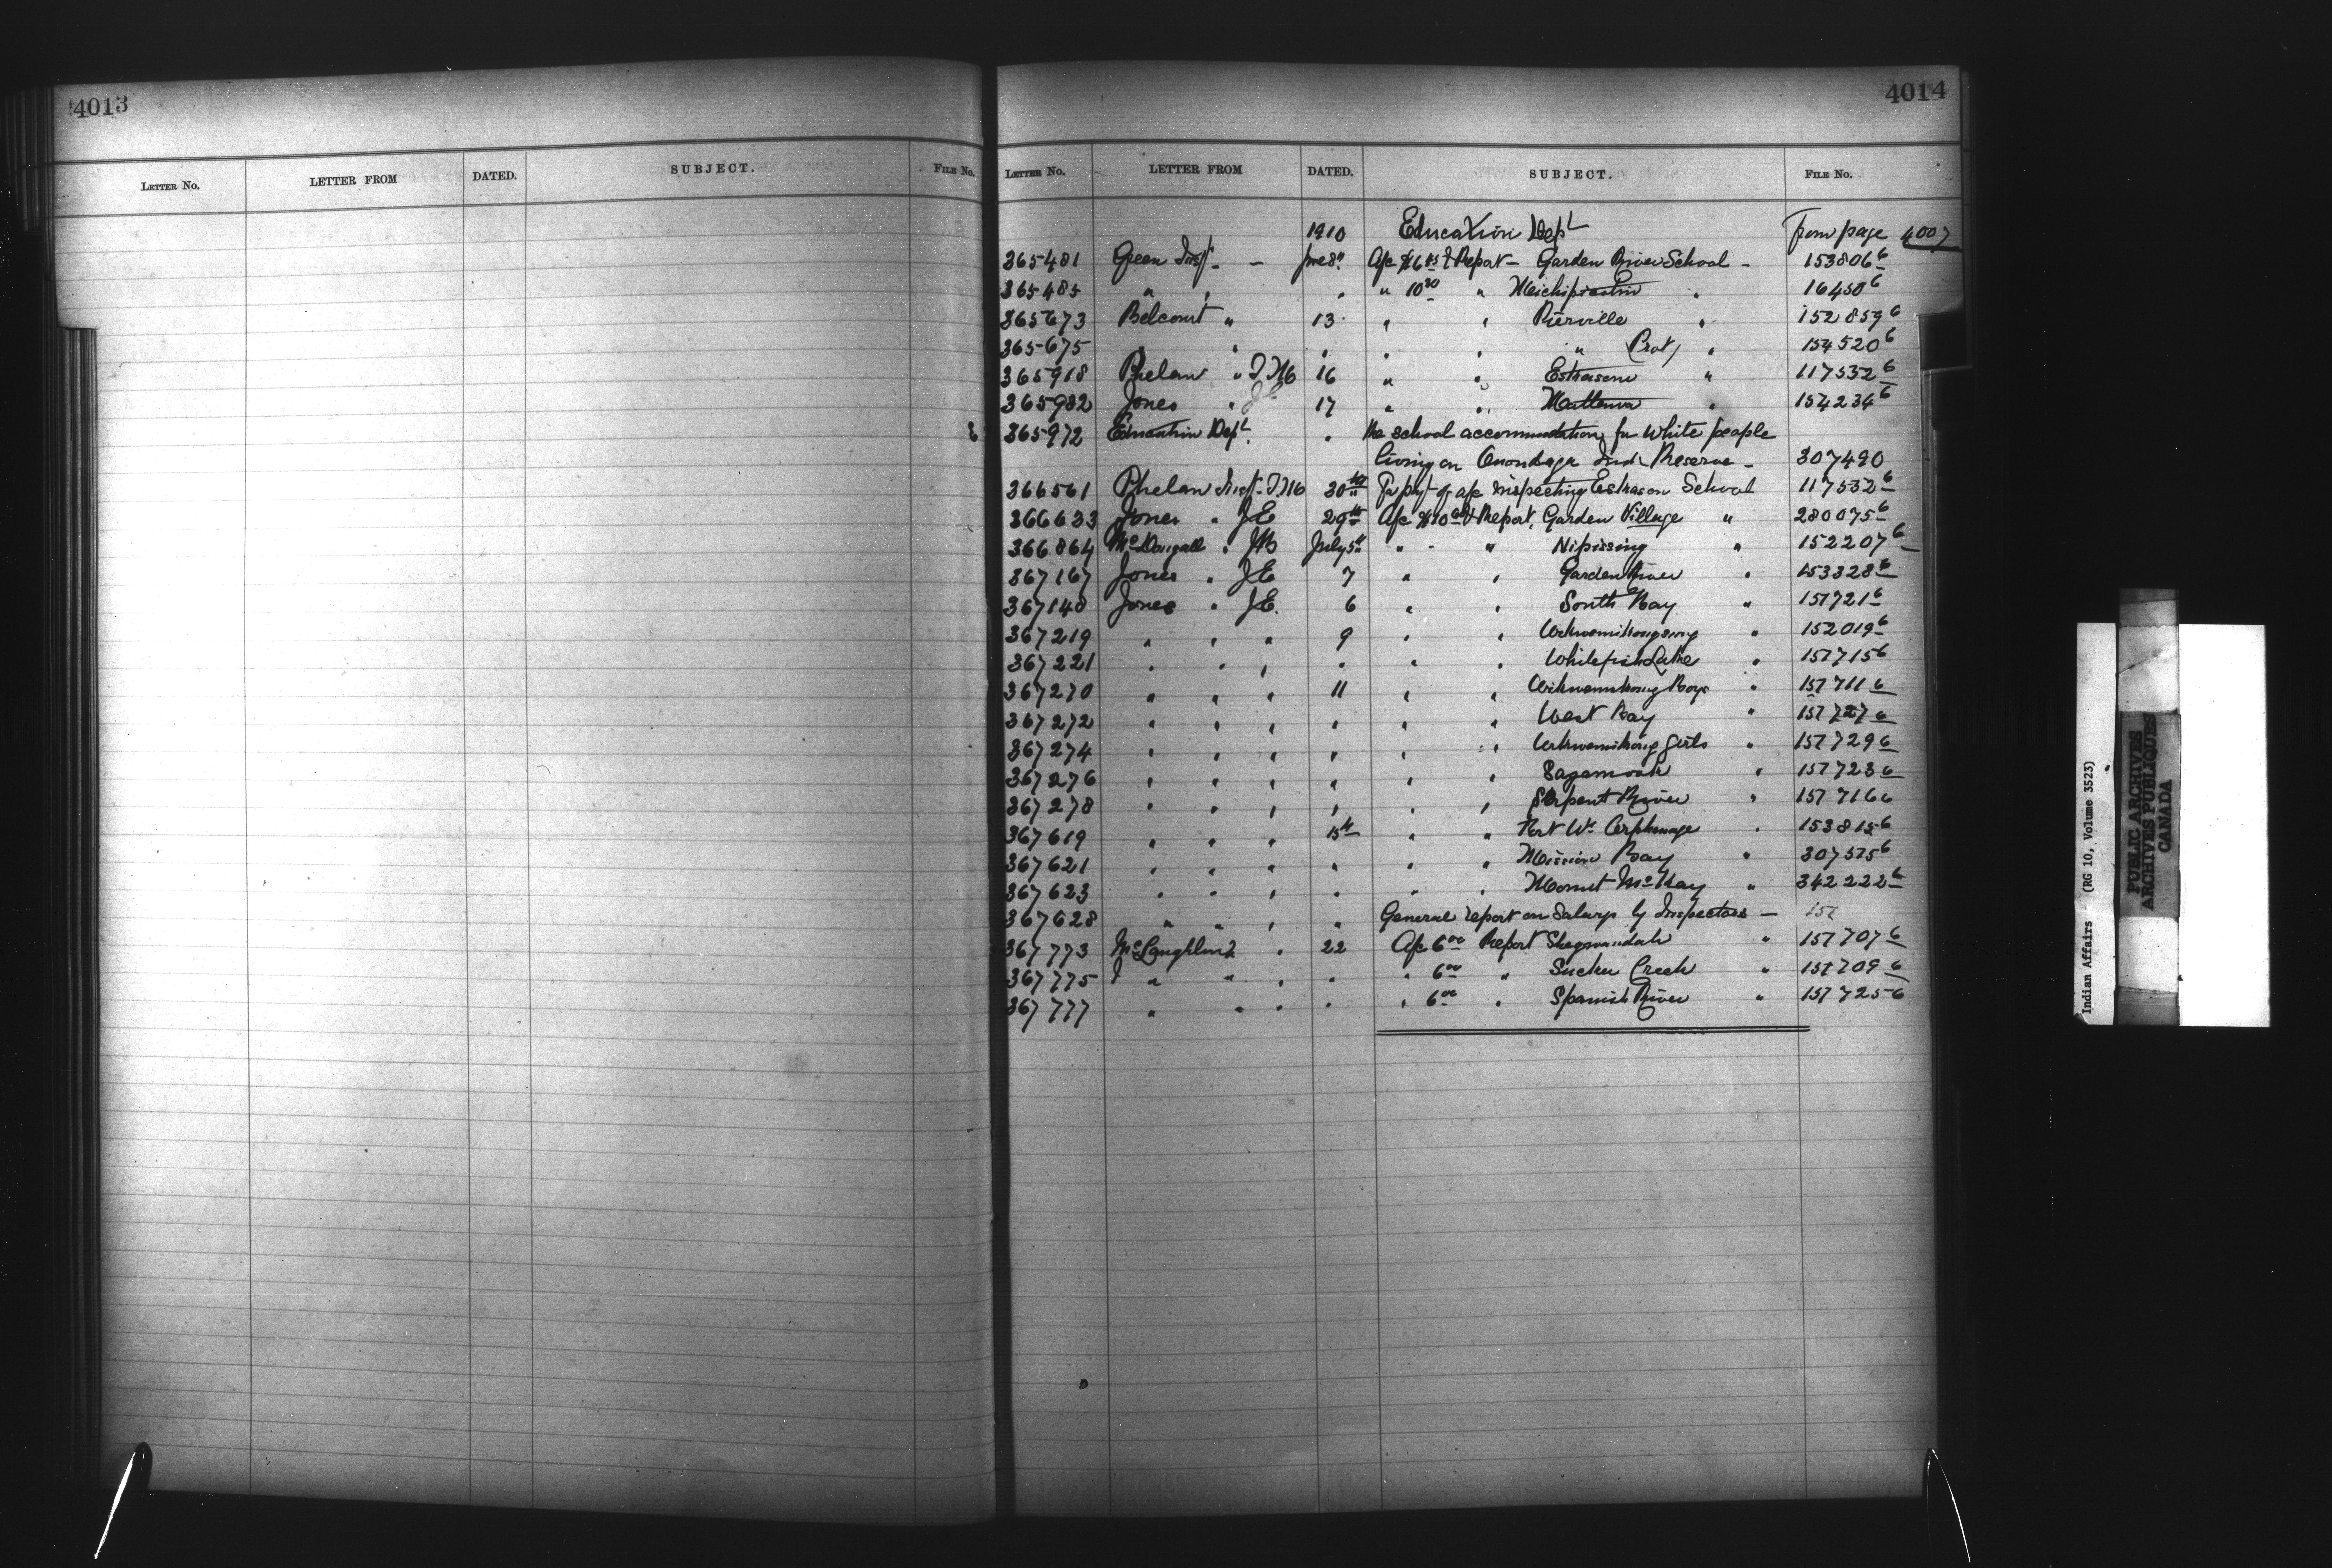 4013
LETTER NO. LETTER FROM DATED. SUBJECT. FILE NO.
4014
LETTER NO. LETTER FROM DATED. SUBJECT. FILE NO.
1910 Education Dept from page 4007
365481 Green Insp. - June 8" a/c $6 & Report - Garden River School - 153806 6
365485 " " " " 10 20 " Michipicoten " 16450 6
365673 Belcourt " 13 " " Pierville " 152859 6
365675 " " " " " " Prot) " 154520 6
365918 Phelan " 16 " " Eskasoni " 117532 6
365982 Jones " JE 17 " " Mattawa " 154234 6
365972 Education Dept. " the school accommodation for white people
living on Onondaga Ind. Reserve - 307490
366561 Phelan Insp. 30th For pbyt of a/c inspecting Eskasoni School 117532 6
366633 Jones " JE 29th a/c $10 & Report, Garden Village " 280075 6
366864 McDougall " JB July 5" " - " Nipissing " 152207 6
367167 Jones " JE 7 " " Garden River " 153328 6
367140 Jones " JE. 6 " " South Bay " 157721 6
367219 " " " 9 " " Wikwemikongsing " 152019 6
367221 " " " " " " Whitefish Lake " 157715 6
367270 " " " 11 " " Wikwemikong Boys " 157711 6
367272 " " " " " " West Bay " 157727 6
367274 " " " " " " Wikwemikong Girls " 157729 6
367276 " " " " " " Sagamook " 157723 6
367278 " " " " " " Serpent River " 157716 6
367619 " " " 15th " " Fort Wm Orphanage " 153815 6
367621 " " " " " " Mission Bay " 307575 6
367623 " " " " " " Mount McKay " 342222 6
367628 " " " " General report on Salarys by Inspectors - 157
367773 McLaughlin " 22 a/c 6 00 Report Shegwandah " 157707 6
367775 " " " " " 6 00 " Sucker Creek " 157709 6
367777 " " " " " 6 00 " Spanish River " 157725 6
Indian Affairs (RG 10, Volume 3523)
PUBLIC ARCHIVES
ARCHIVES PUBLIQUES
CANADA